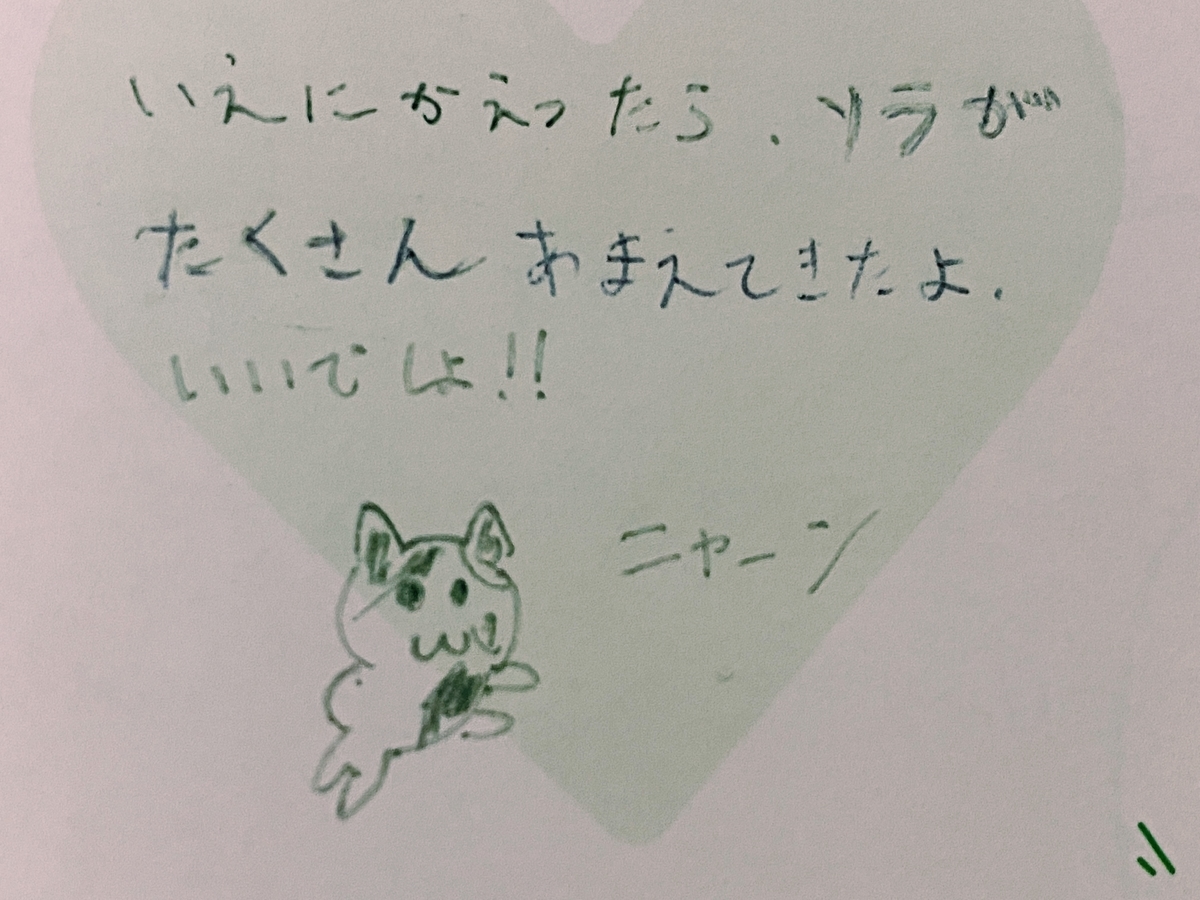 いえにかえったら.ソラが
たくさんあまえてきたよ.
いいでしょ!!
ニャーン